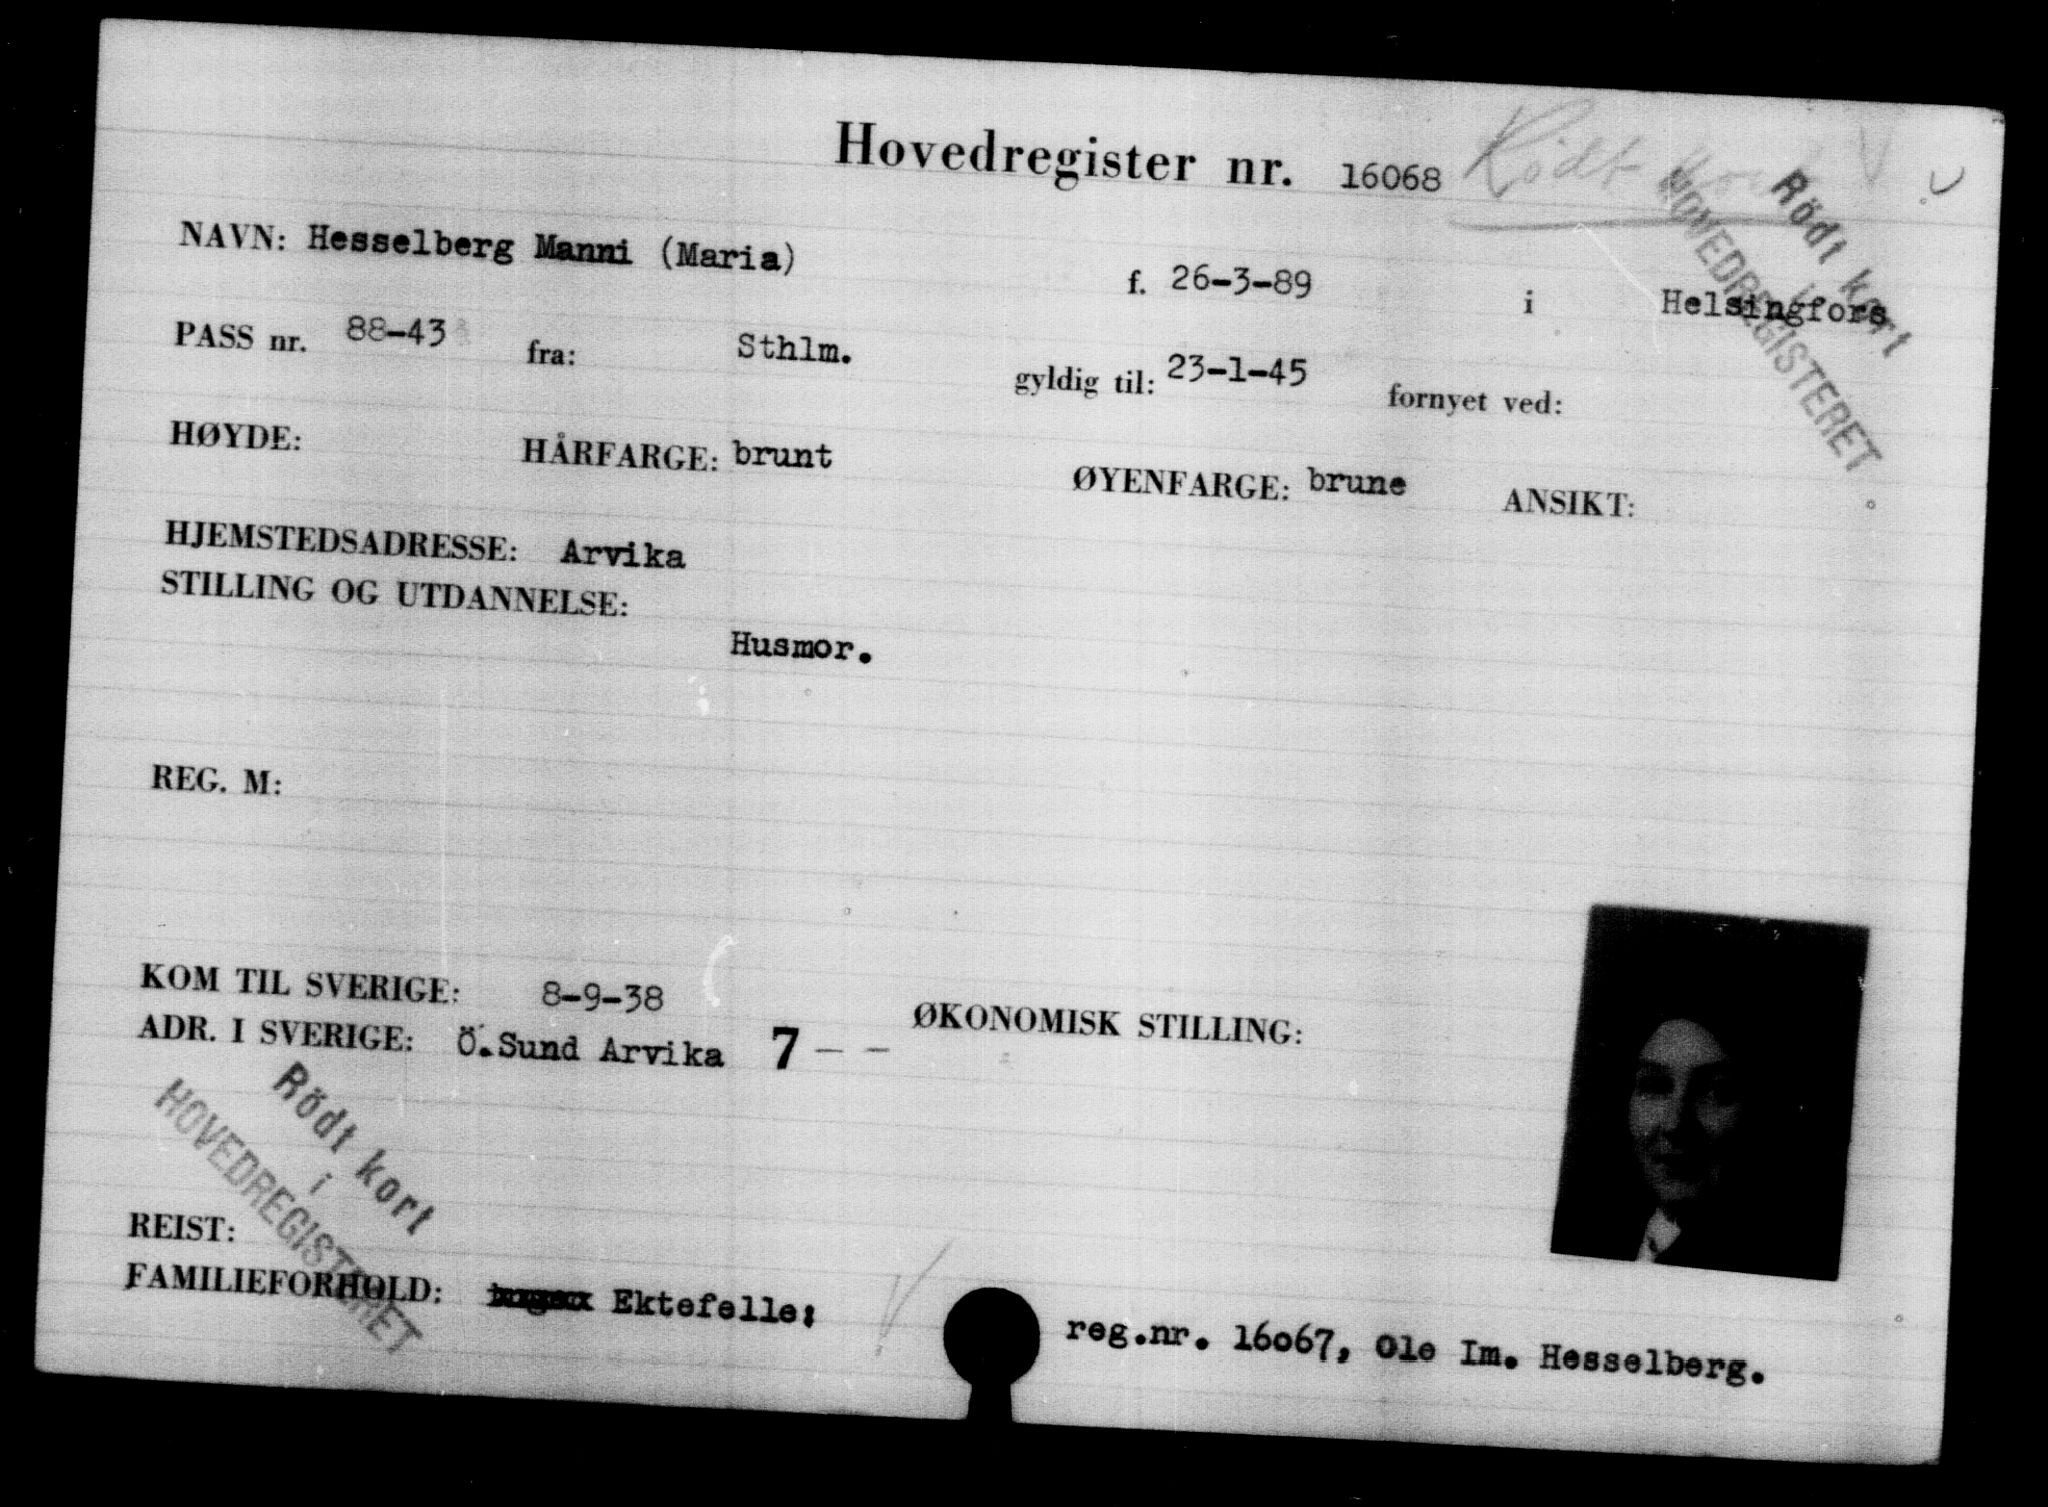 Hovedregister nr. 16068 Rödt kort
Rödt kort
i
HOVEDREGISTERET
NAVN: Hesselberg Manni (Maria) f. 26-3-89 i Helsingfors
PASS nr. 88-43 fra: Sthlm. gyldig til: 23-1-45 fornyet ved:
HØYDE: HÅRFARGE: brunt ØYENFARGE: brune ANSIKT:
HJEMSTEDSADRESSE: Arvika
STILLING OG UTDANNELSE:
Husmor.
REG. M:
KOM TIL SVERIGE: 8-9-38 ØKONOMISK STILLING:
ADR. I SVERIGE: Ö.Sund Arvika 7 - -
Rödt kort
i
HOVEDREGISTERET
REIST:
FAMILIEFORHOLD: Ektefelle: reg.nr. 16o67, Ole Im. Hesselberg.